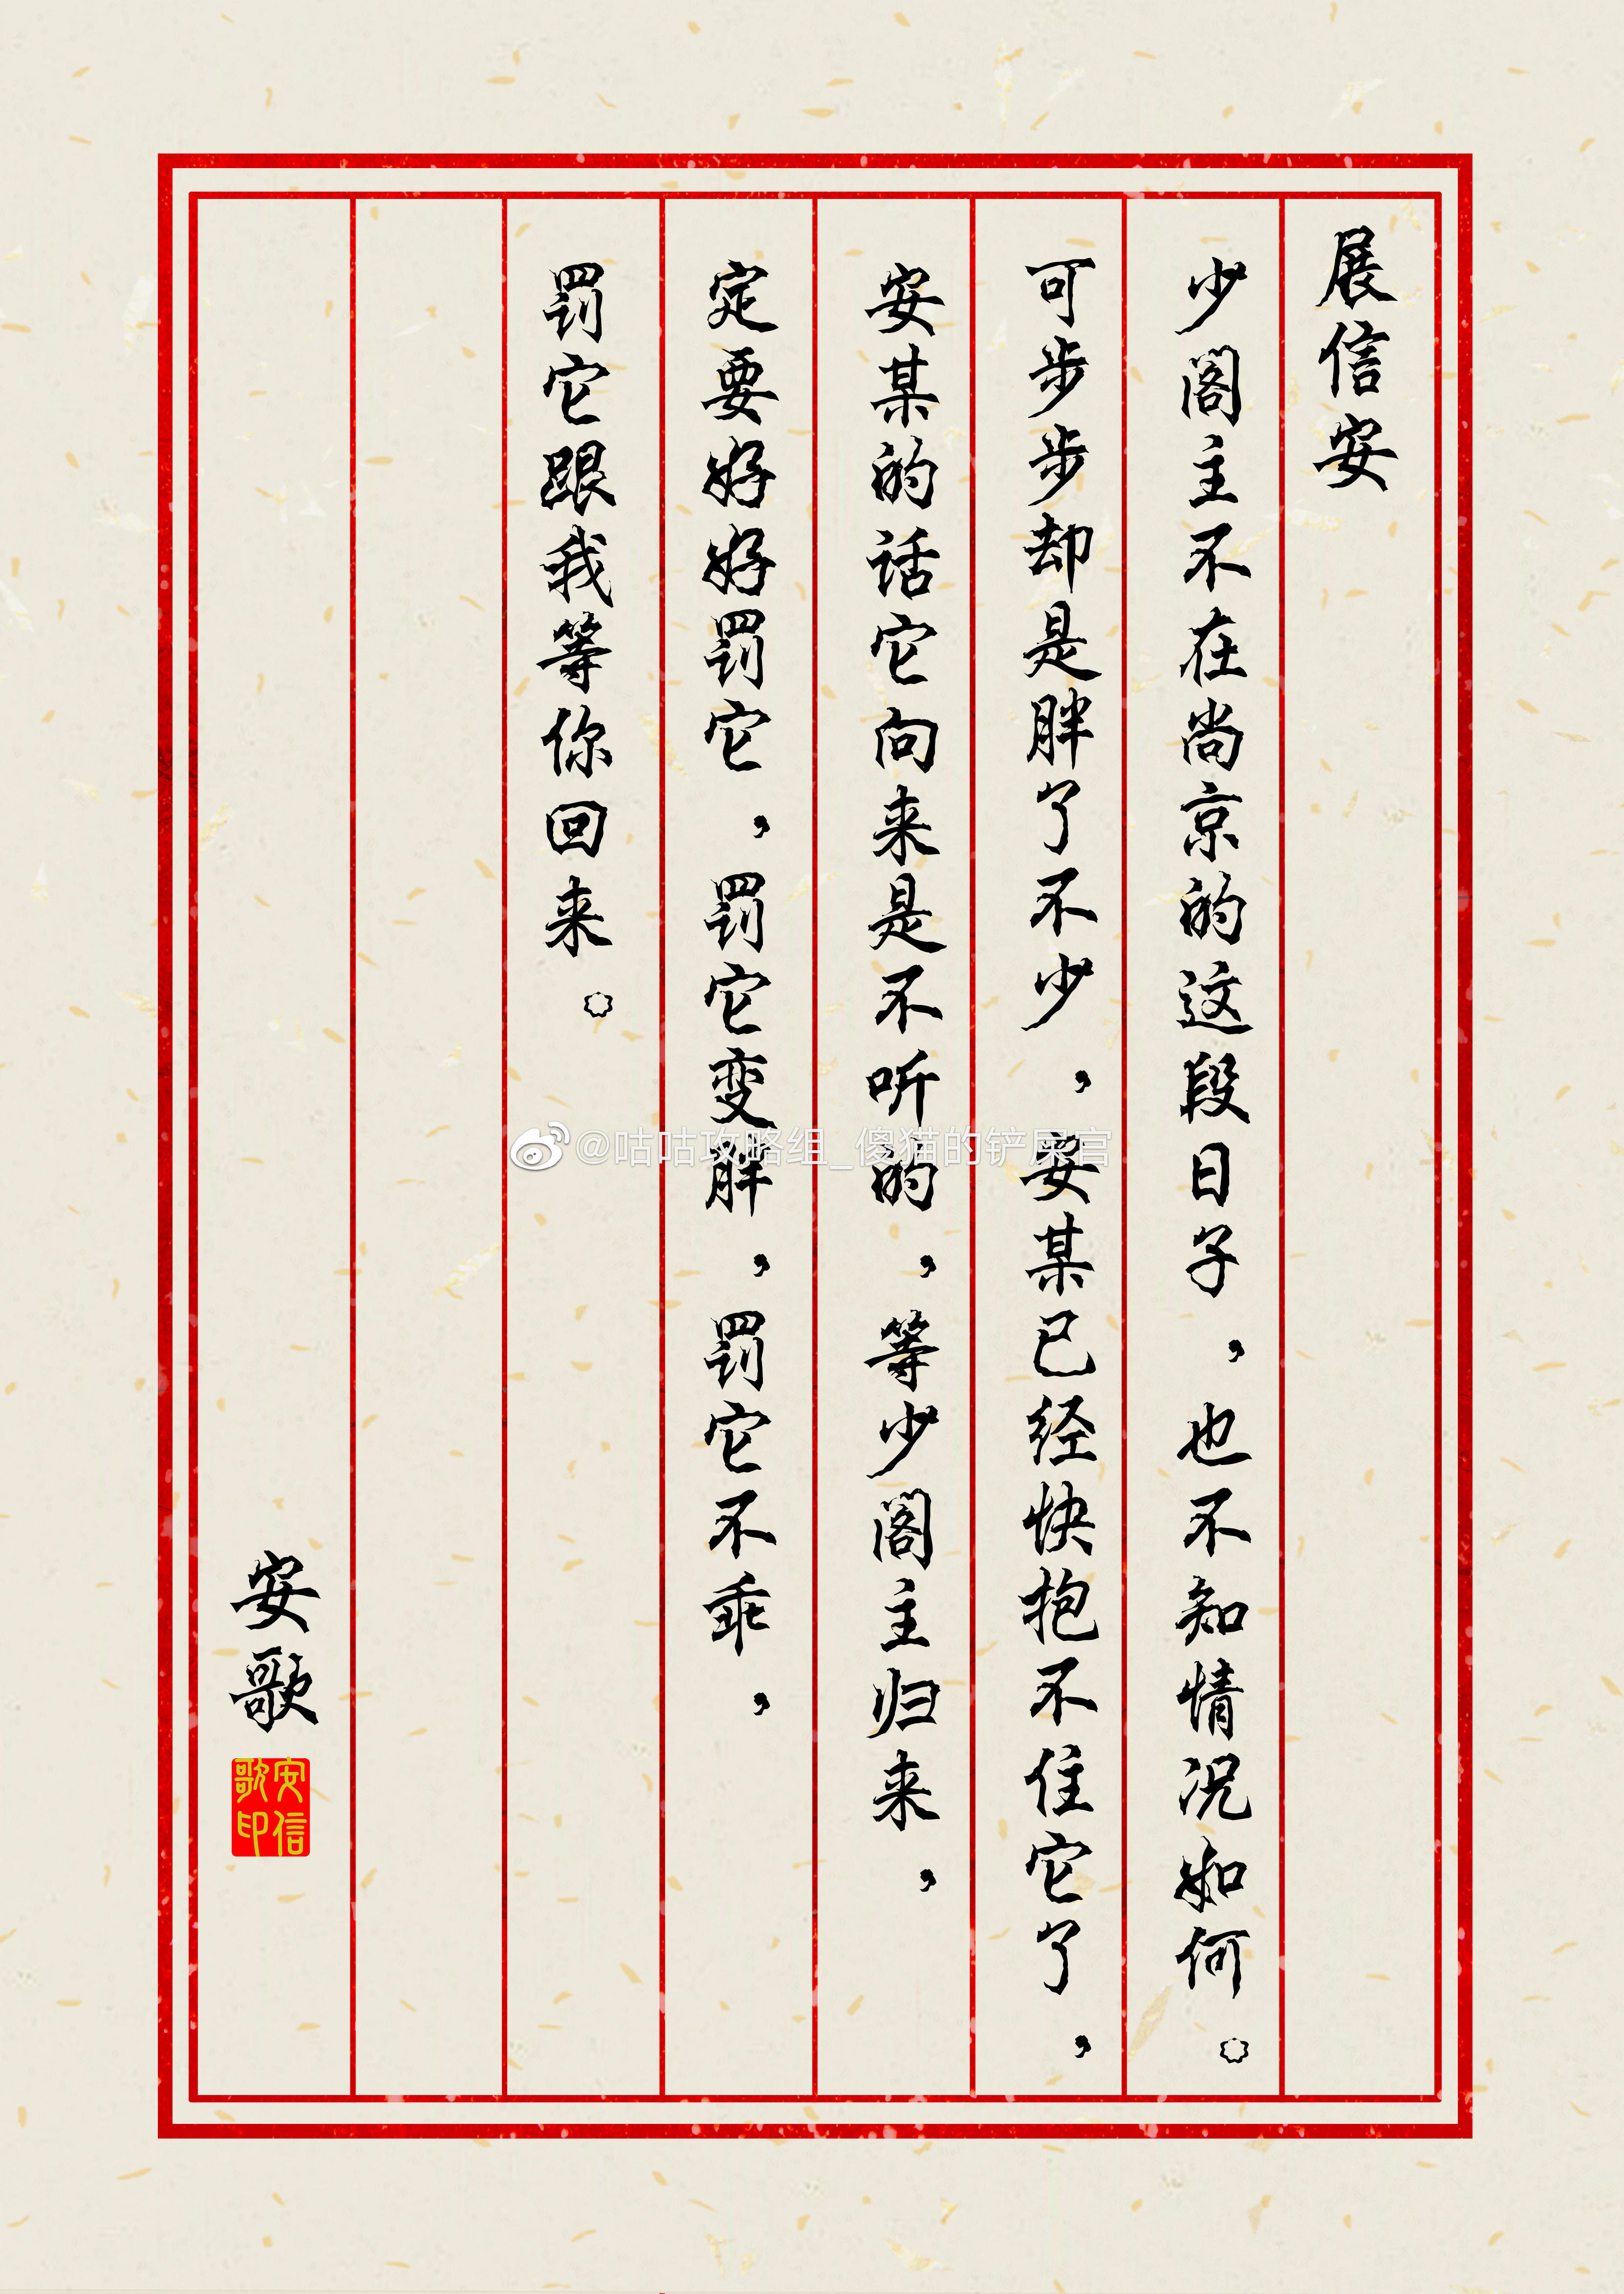 展信安
少阁主不在尚京的这段日子，也不知情况如何。
可步步却是胖了不少，安某已经快抱不住它了，
安某的话它向来是不听的，等少阁主归来，
定要好好罚它，罚它变胖，罚它不乖，
罚它跟我等你回来。
安歌
安信
歌印
@咕咕攻略组_傻猫的铲屎官